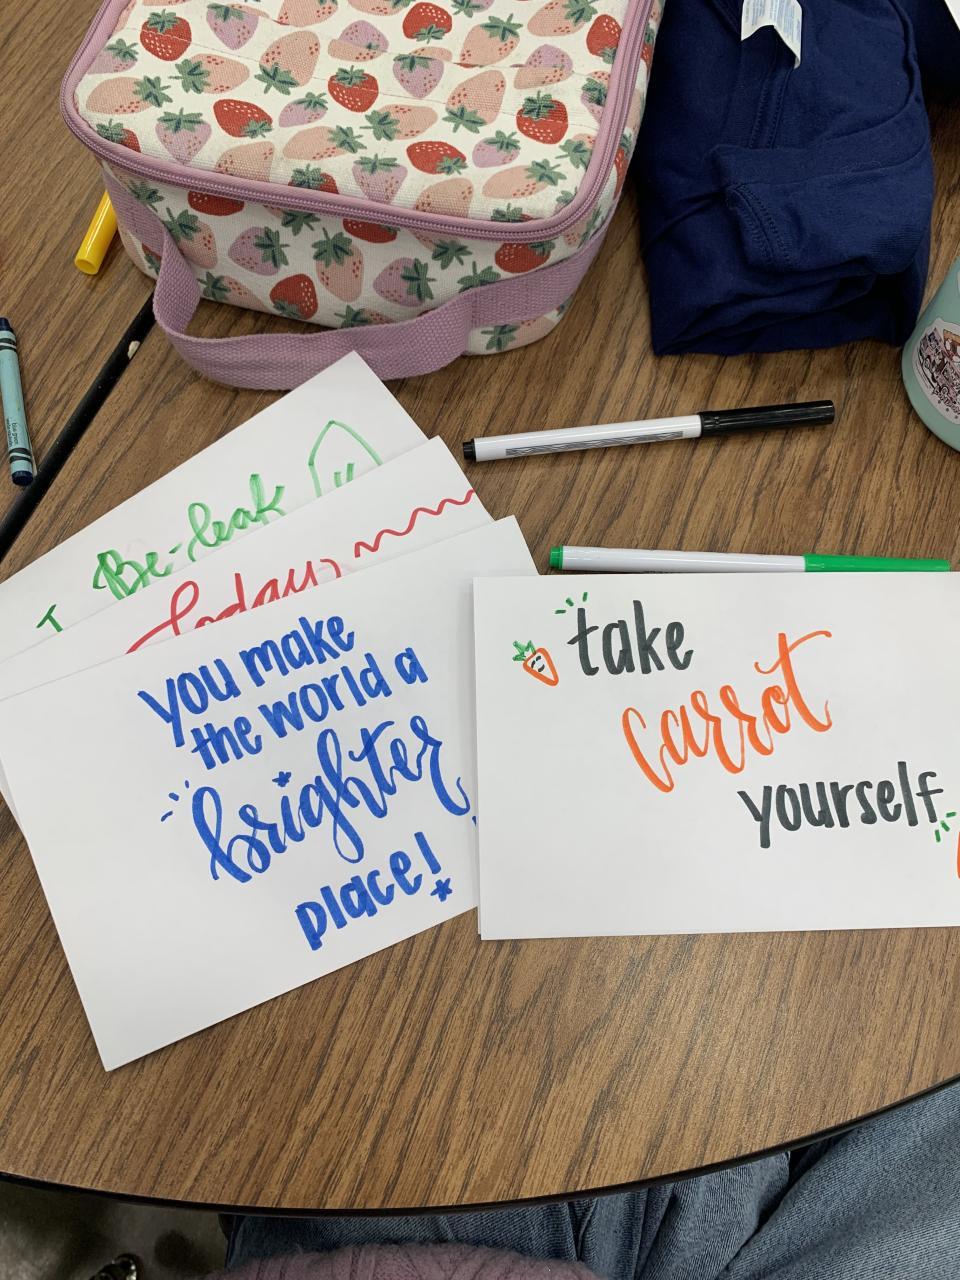 I Be-leaf
Today
you make
the world a
brighter
place!
take
carrot
yourself